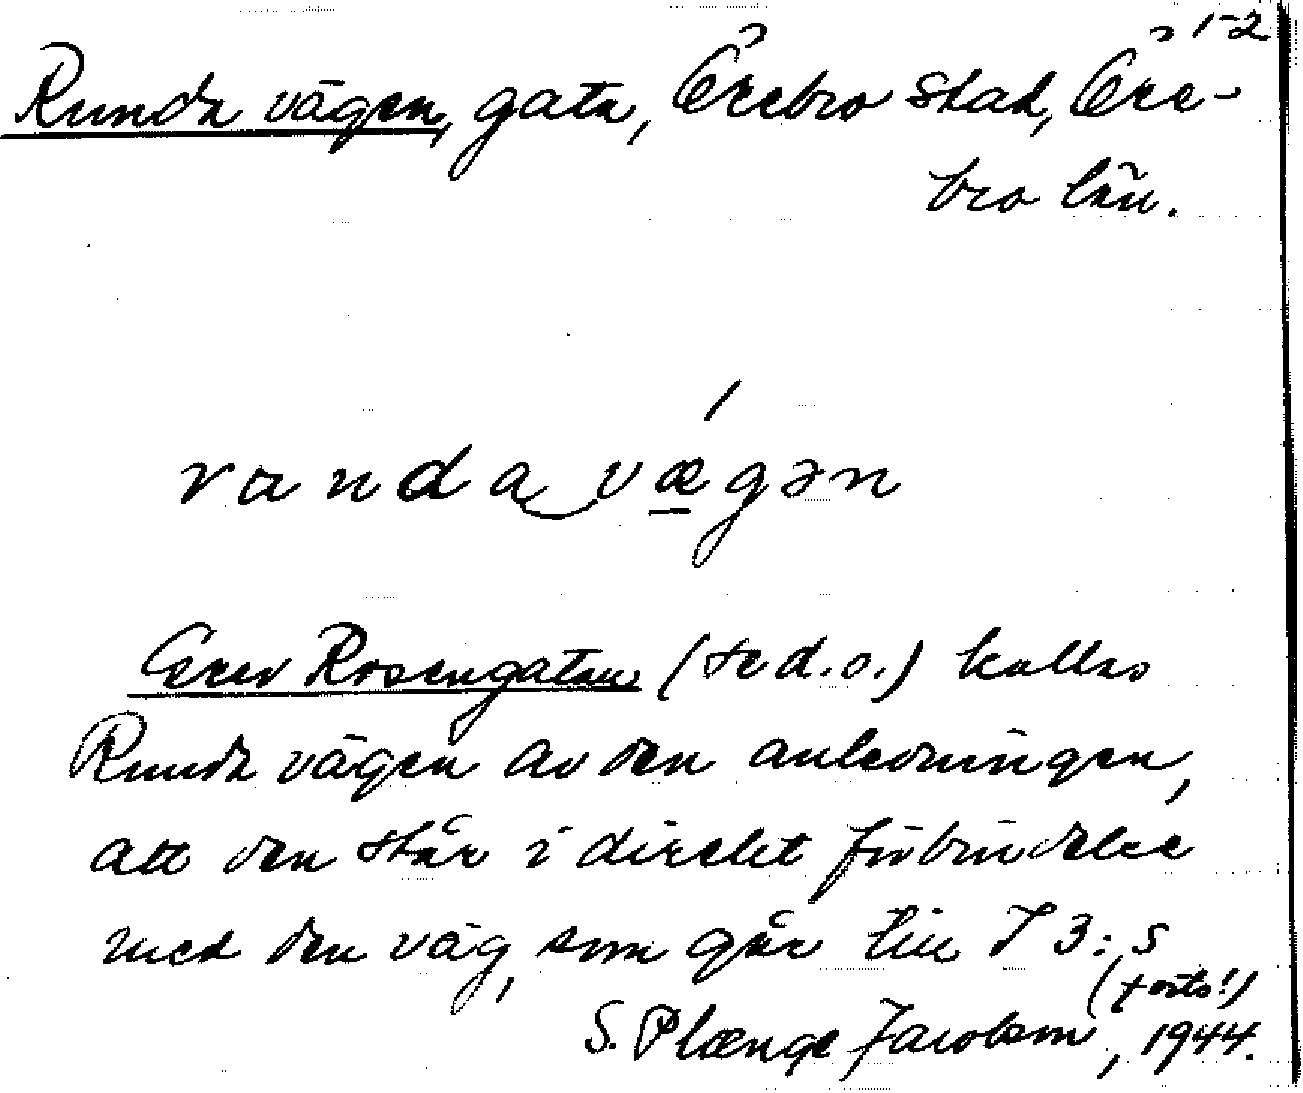 1-2
Runda vägen, gata, Örebro stad, Öre-
bro län.
randa vægən
Grev Rosengatan (se d.o.) kallas
Runda vägen av den anledningen,
att den står i direkt förbindelse
med den väg, som går till I 3:s
(forts!)
S. Plænge Jacobson, 1944.